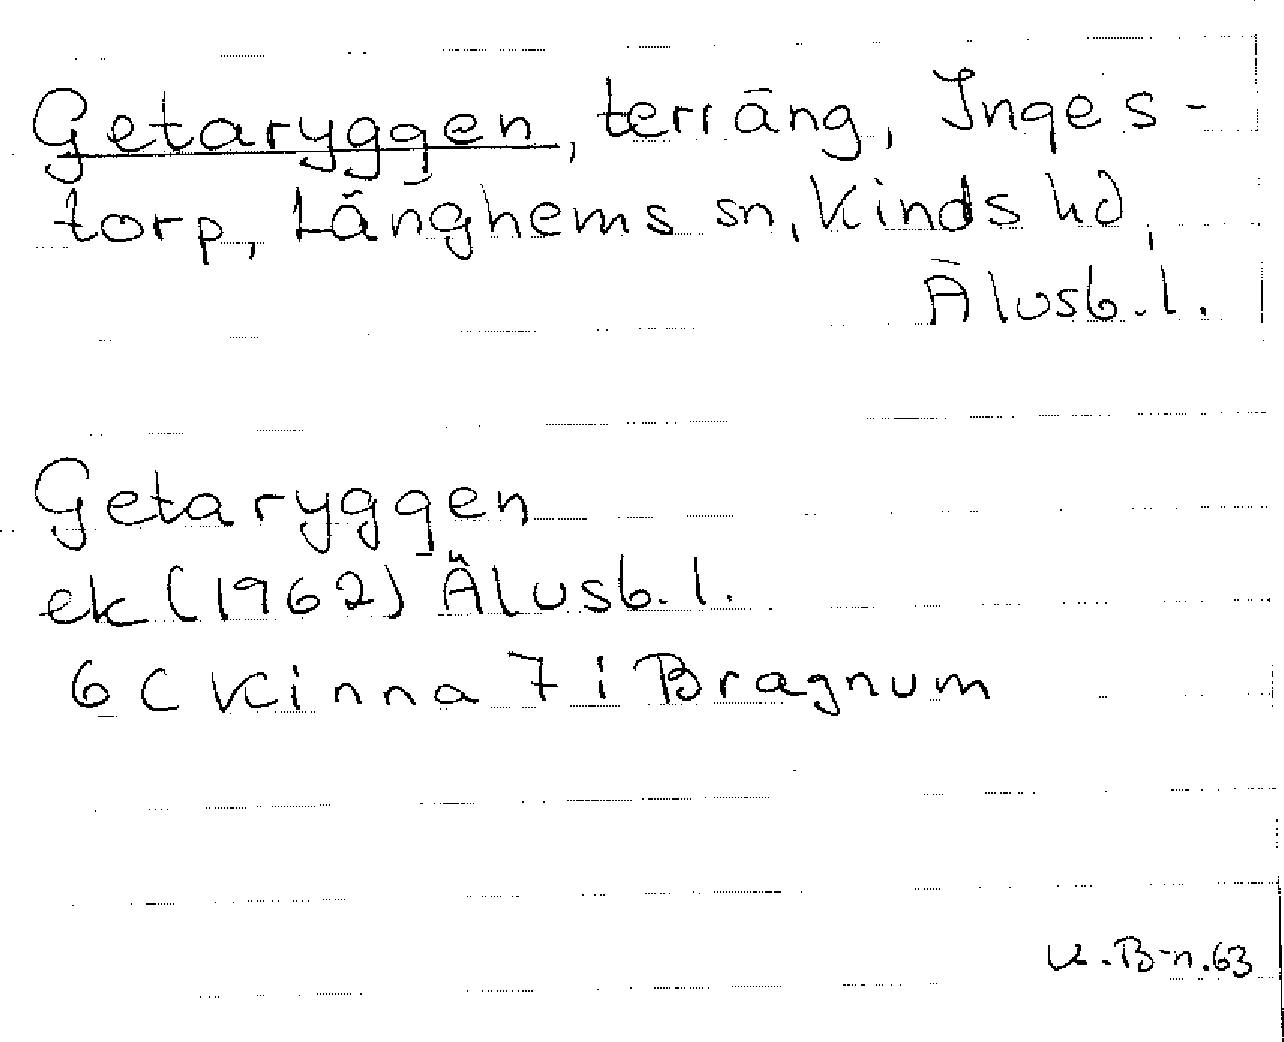 Getaryggen, terräng, Inges-
torp, Länghems sn, Kinds hd,
Älvsb. l.
Getaryggen
ek (1962) Älvsb. l.
6 C Kinna 7 i Bragnum
K. B-n. 63